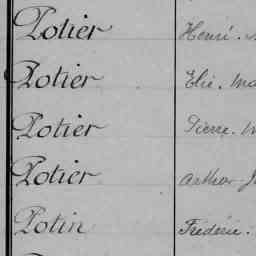 Potier Henri.
Potier Elie. Ma
Potier Pierre. M
Potier Arthur J
Potin Frédéric.